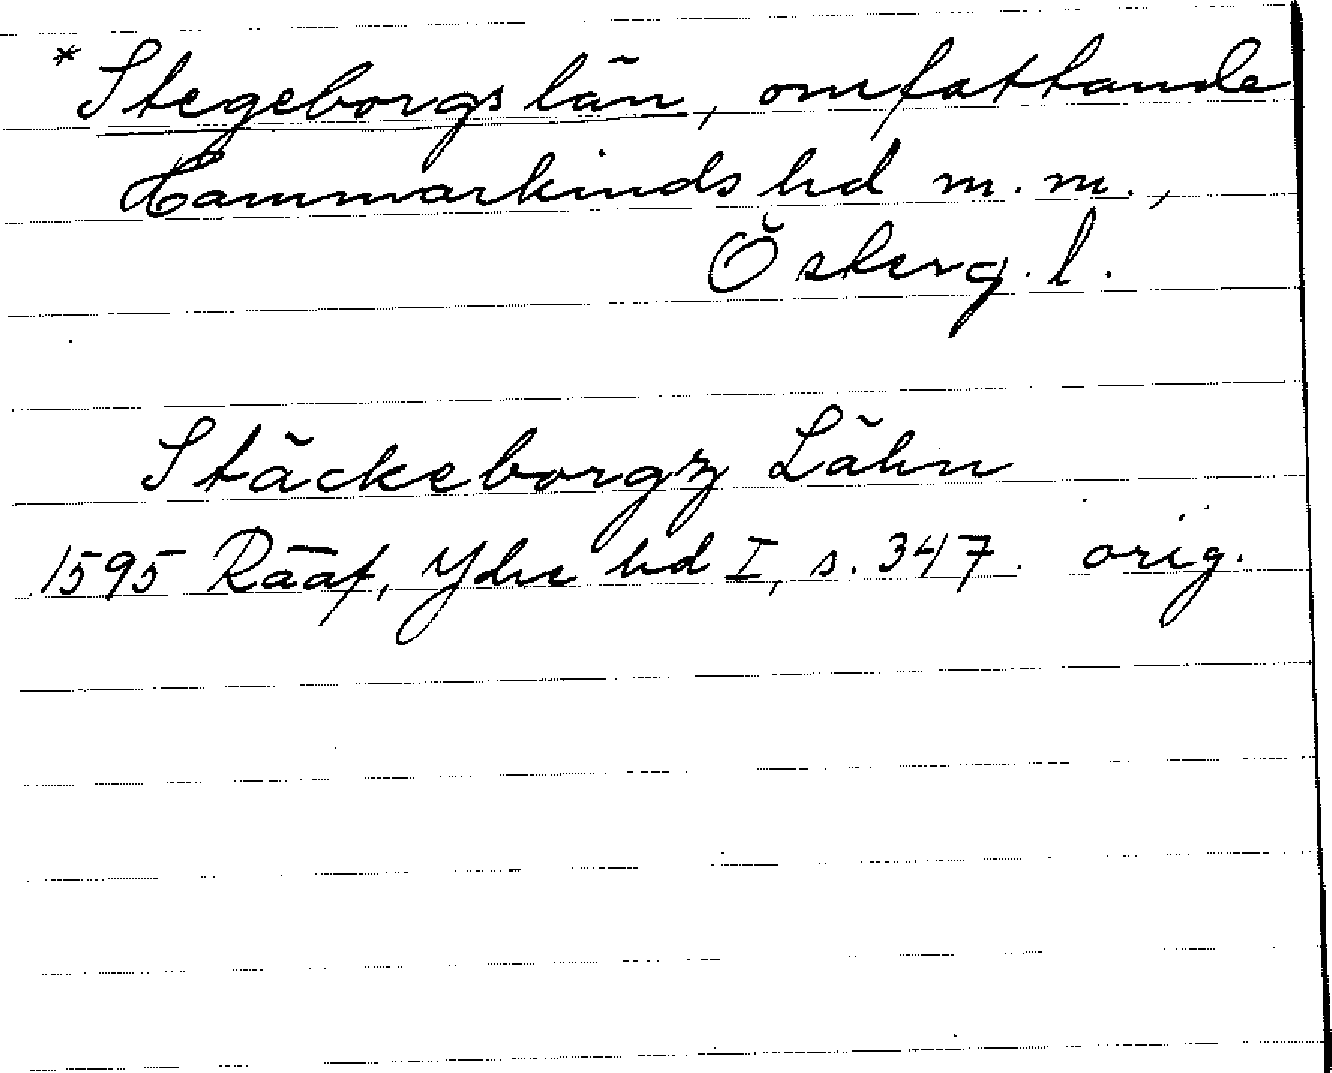 * Stegeborgs län, omfattande
Hammarkinds hd m.m.,
Österg. l.
Stäckeborgz Lähn
1595 Rääf, Ydre hd I, s. 347. orig.